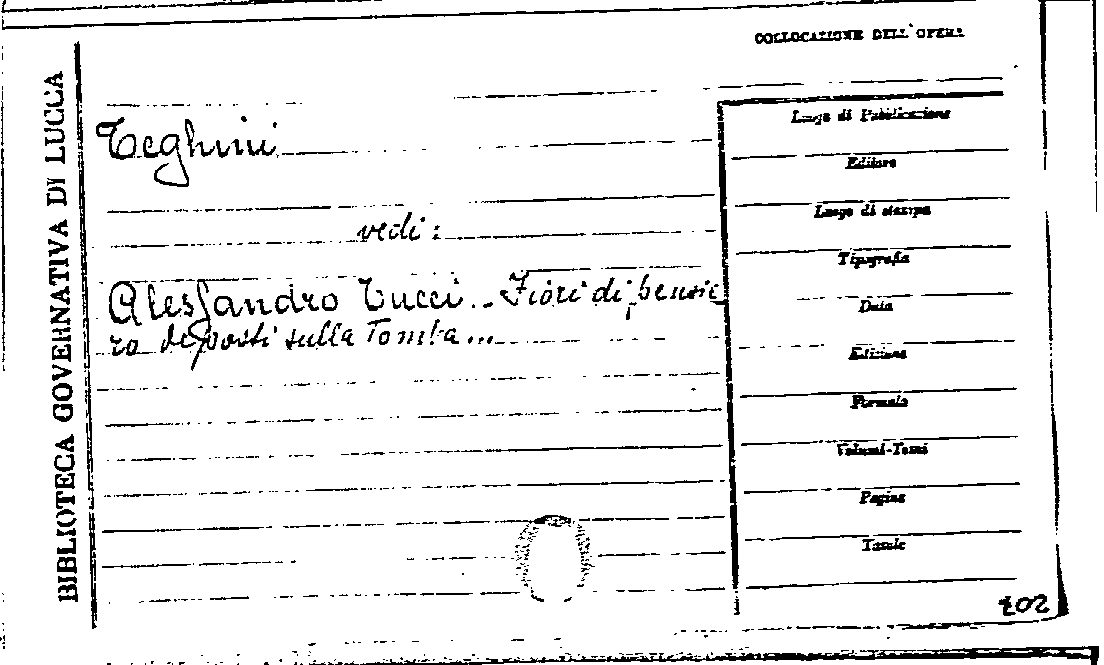 COLLOCAZIONE DELL'OPERA
BIBLIOTECA GOVERNATIVA DI LUCCA
Teghini
vedi:
Alessandro Tucci - Fiori di pensie
ro deposti sulla Tomba...
Luogo di Pubblicazione
Editore
Luogo di stampa
Tipografia
Data
Edizione
Formato
Volumi-Tomi
Pagine
Tavole
202